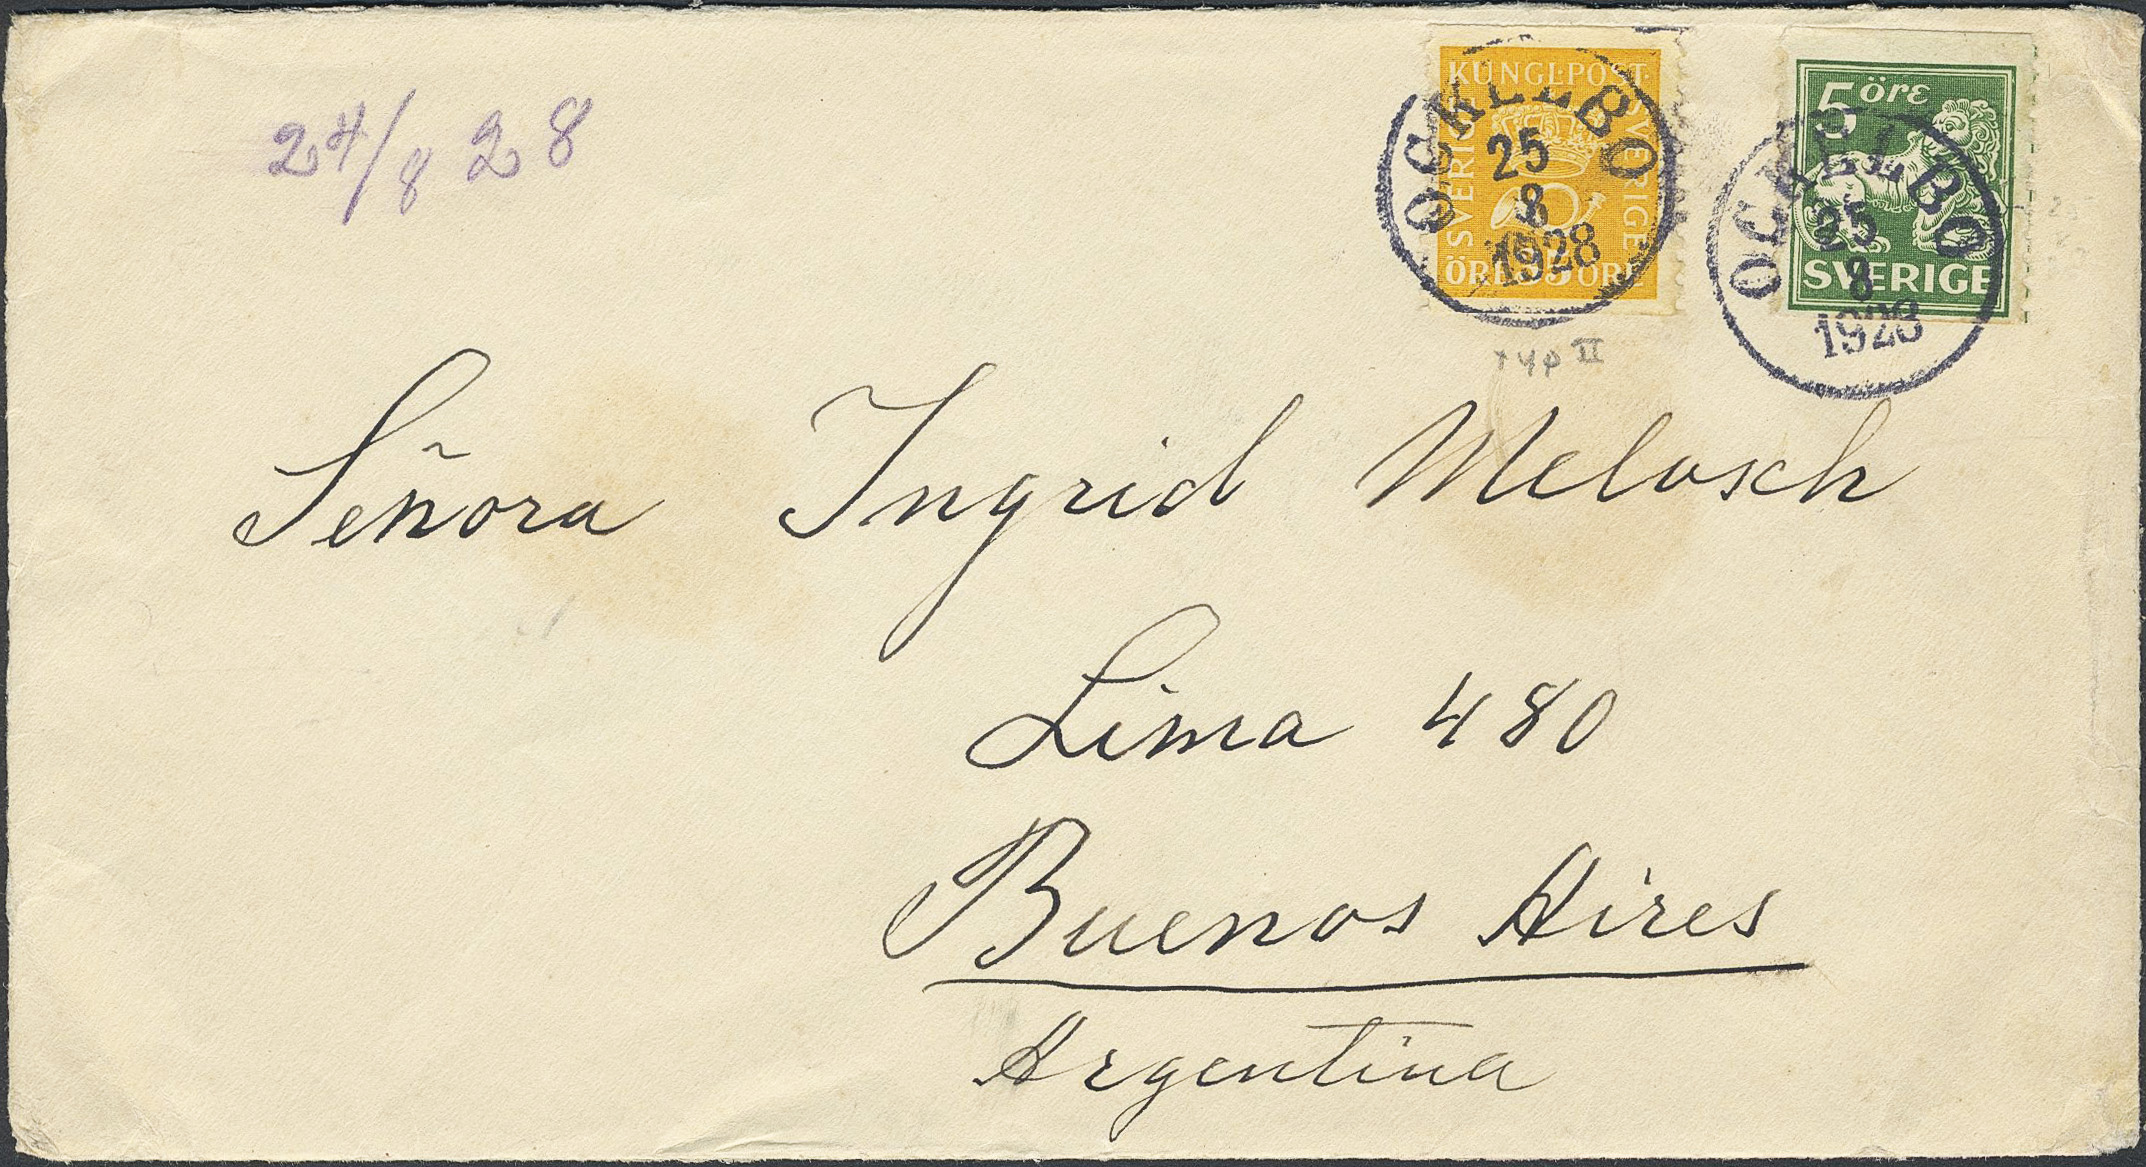 24/8 28
KUNGL·POST
SVERIGE
SVERIGE
ÖRE 35 ÖRE
OCKELBO
25
8
1928
5 öre
SVERIGE
OCKELBO
25
8
1928
typ II
Señora Ingrid Melosch
Lima 480
Buenos Aires
Argentina